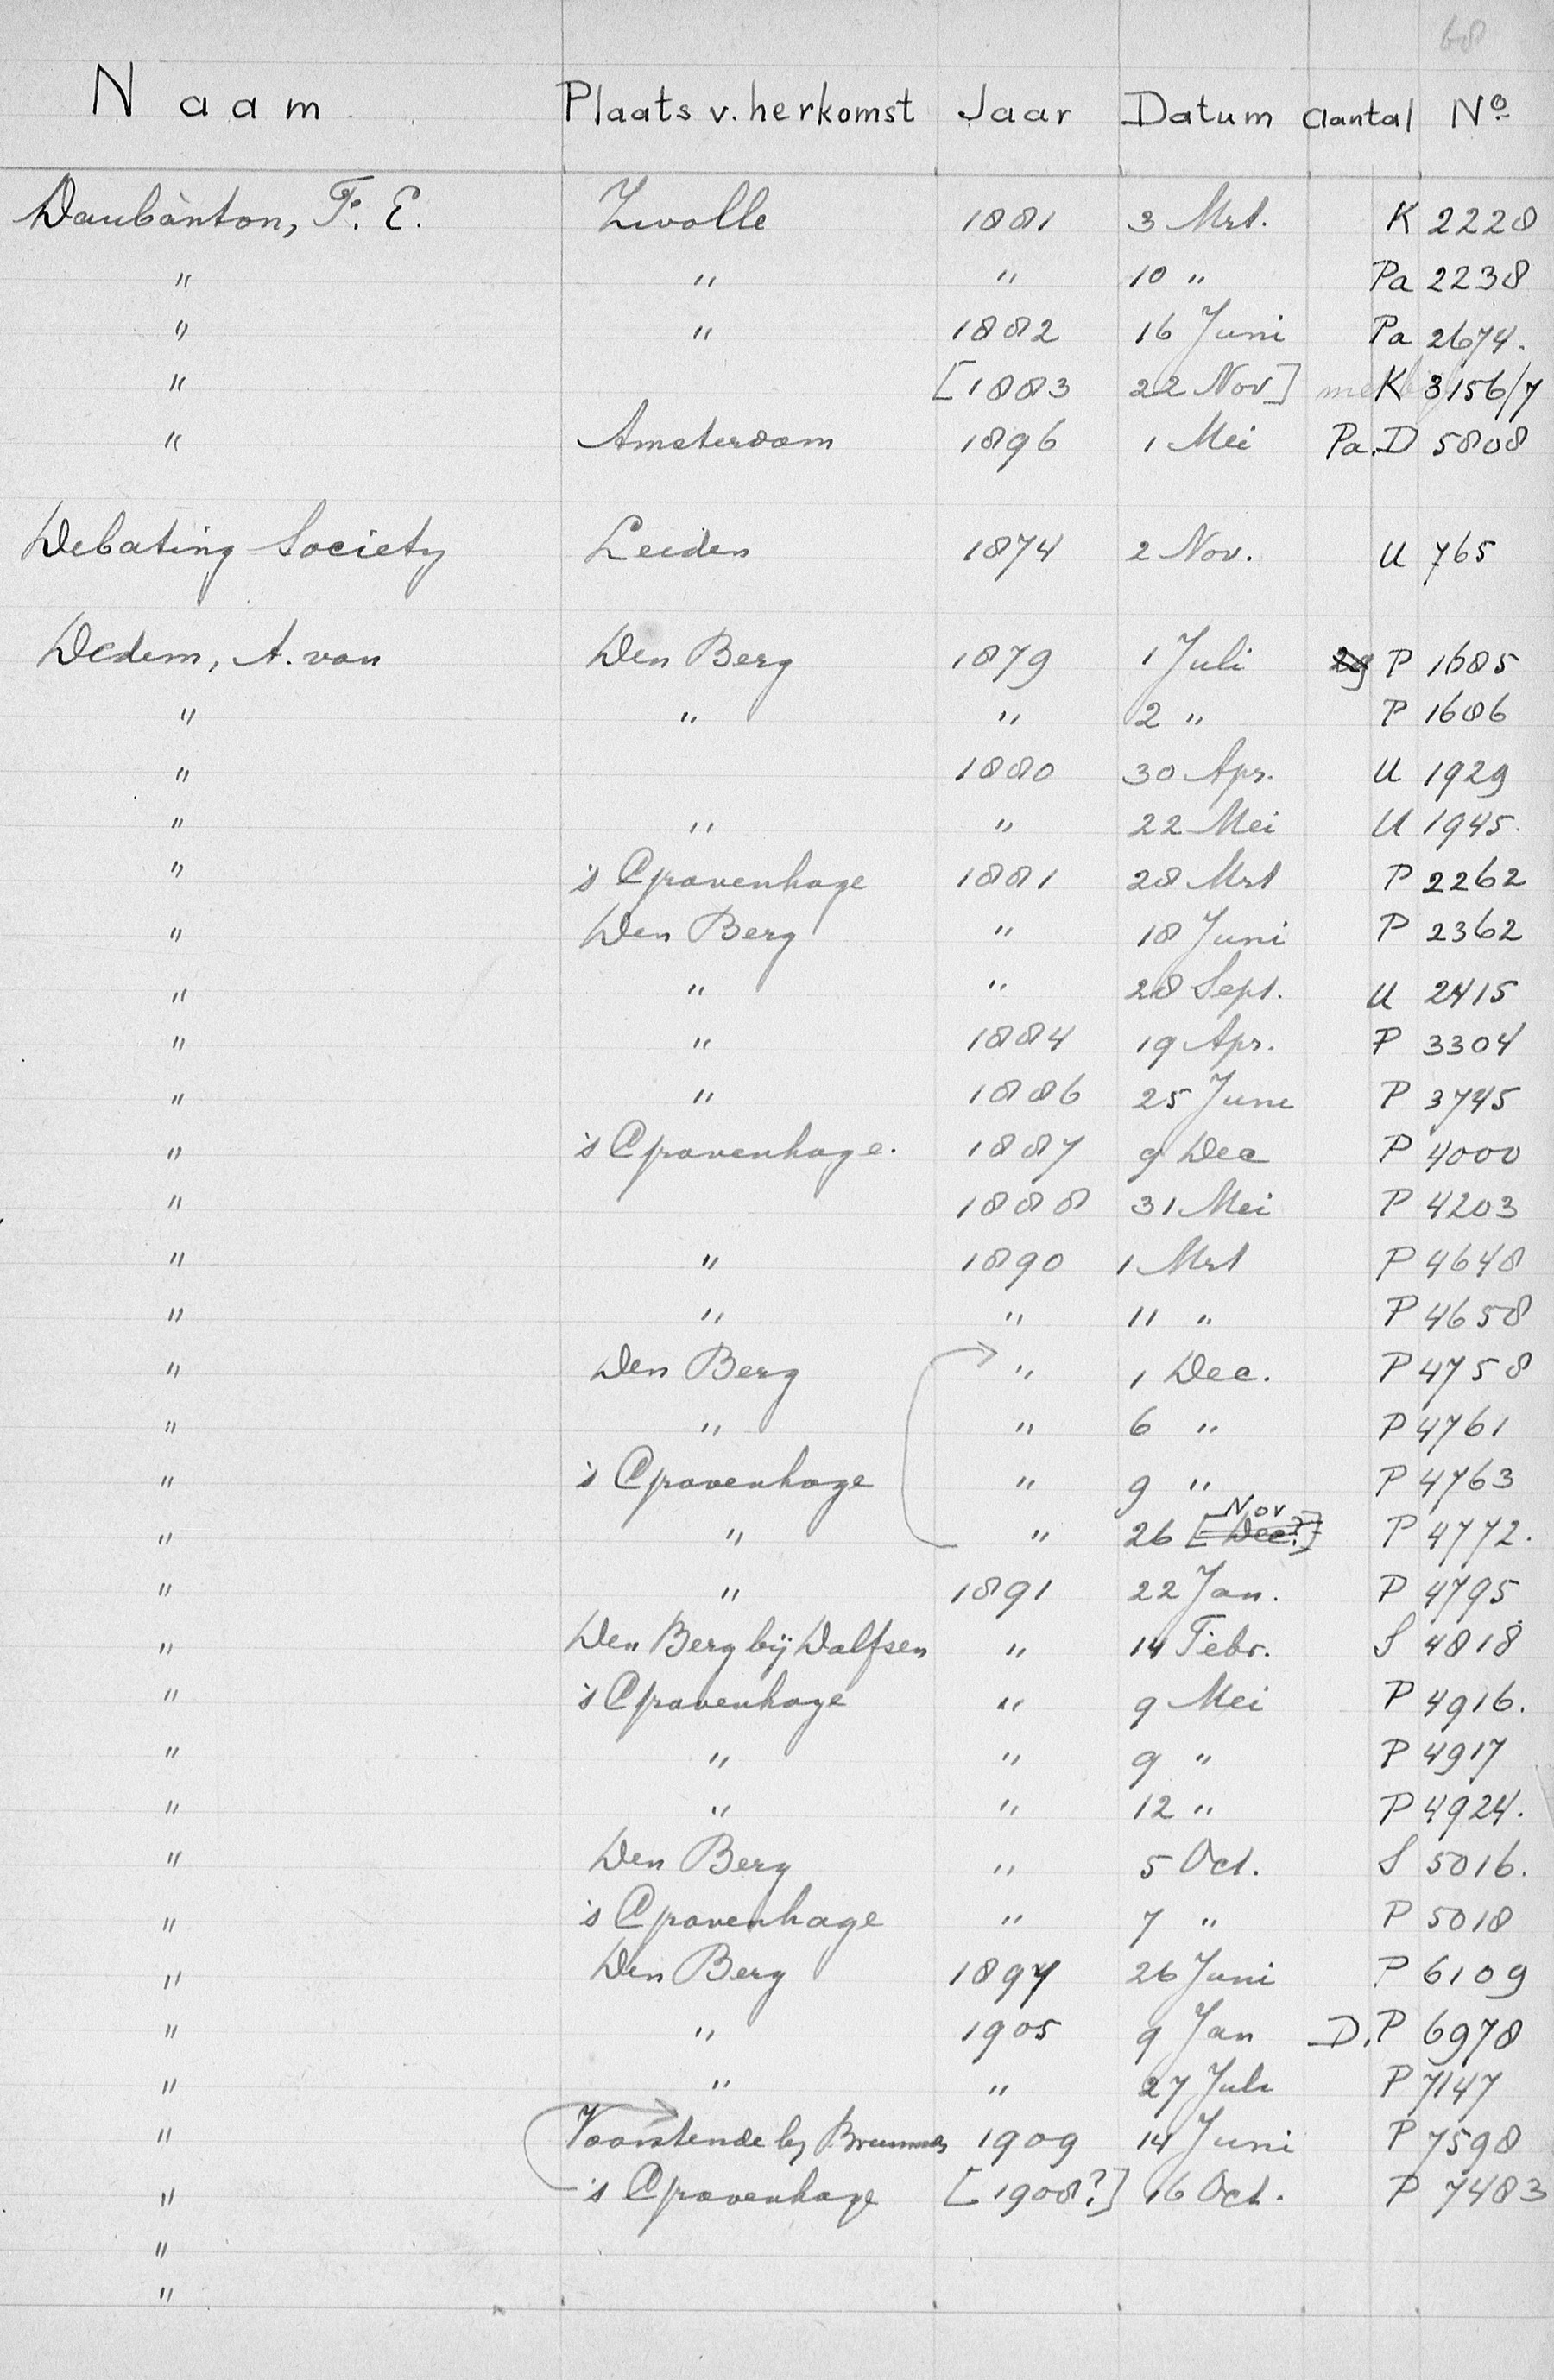 68
Naam Plaats v. herkomst Jaar Datum Aantal Nº
Daubanton, F. E. Zwolle 1881 3 Mrt. K 2228
" " " 10 " Pa 2238
" " 1882 16 Juni Pa 2674.
" [1883 22 Nov] K 3156/7
" Amsterdam 1896 1 Mei Pa. D 5808
Debating Society Leiden 1874 2 Nov. U 765
Dedem, A. van Den Berg 1879 1 Juli P 1685
" " " 2 " P 1686
" 1880 30 Apr. U 1929
" " " 22 Mei U 1945.
" 's Gravenhage 1881 28 Mrt P 2262
" Den Berg " 18 Juni P 2362
" " " 28 Sept. U 2415
" " 1884 19 Apr. P 3304
" " 1886 25 Juni P 3745
" 's Gravenhage. 1887 9 Dec P 4000
" 1888 31 Mei P 4203
" " 1890 1 Mrt P 4648
" " " 11 " P 4658
" Den Berg " 1 Dec. P 4758
" " " 6 " P 4761
" 's Gravenhage " 9 " P 4763
" " " 26 [Dec?] Nov P 4772.
" " 1891 22 Jan. P 4795
" Den Berg bij Dalfsen " 14 Febr. S 4818
" 's Gravenhage " 9 Mei P 4916.
" " " 9 " P 4917
" " " 12 " P 4924.
" Den Berg " 5 Oct. S 5016.
" 's Gravenhage " 7 " P 5018
" Den Berg 1897 26 Juni P 6109
" " 1905 9 Jan D. P 6978
" " " 27 Juli P 7147
" Voorstende by Brummen 1909 14 Juni P 7598
" 's Gravenhage [1908?] 16 Oct. P 7483
"
"